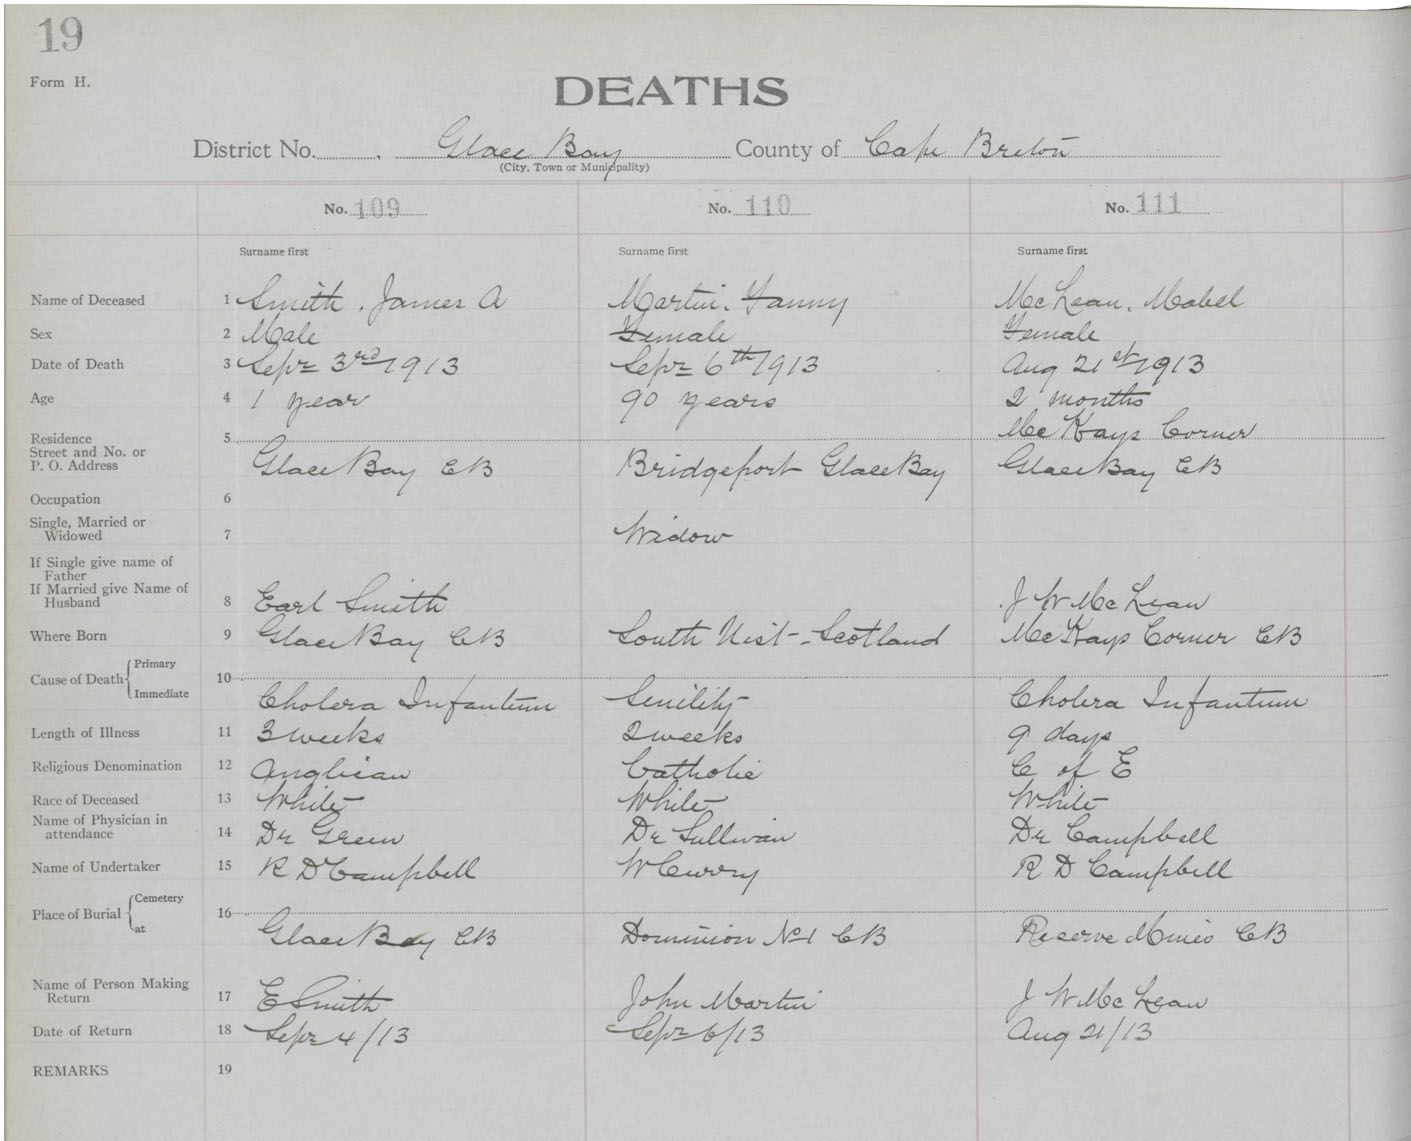 19
Form H.
DEATHS
District No. Glace Bay County of Cape Breton
(City, Town or Municipality)
No. 109 No. 110 No. 111
Surname first Surname first Surname first
Name of Deceased 1 Smith, James A Martin, Fanny McLean, Mabel
Sex 2 Male Female Female
Date of Death 3 Sept 3rd 1913 Sept 6th 1913 Aug 21st 1913
Age 4 1 year 90 years 2 months
McKays Corner
Residence 5
Street and No. or
P. O. Address Glace Bay CB Bridgeport Glace Bay Glace Bay CB
Occupation 6
Single, Married or
Widowed 7 Widow
If Single give name of
Father
If Married give Name of
Husband 8 Earl Smith J W McLean
Where Born 9 Glace Bay CB South Uist - Scotland McKays Corner CB
Cause of Death { Primary 10
Immediate Cholera Infantum Senility Cholera Infantum
Length of Illness 11 3 weeks 2 weeks 9 days
Religious Denomination 12 Anglican Catholic C of E
Race of Deceased 13 White White White
Name of Physician in
attendance 14 Dr Green Dr Sullivan Dr Campbell
Name of Undertaker 15 R D Campbell W Curry R D Campbell
Place of Burial { Cemetery 16
at Glace Bay CB Dominion No 1 CB Reserve Mines CB
Name of Person Making
Return 17 E Smith John Martin J W McLean
Date of Return 18 Sept 4/13 Sept 6/13 Aug 21/13
REMARKS 19